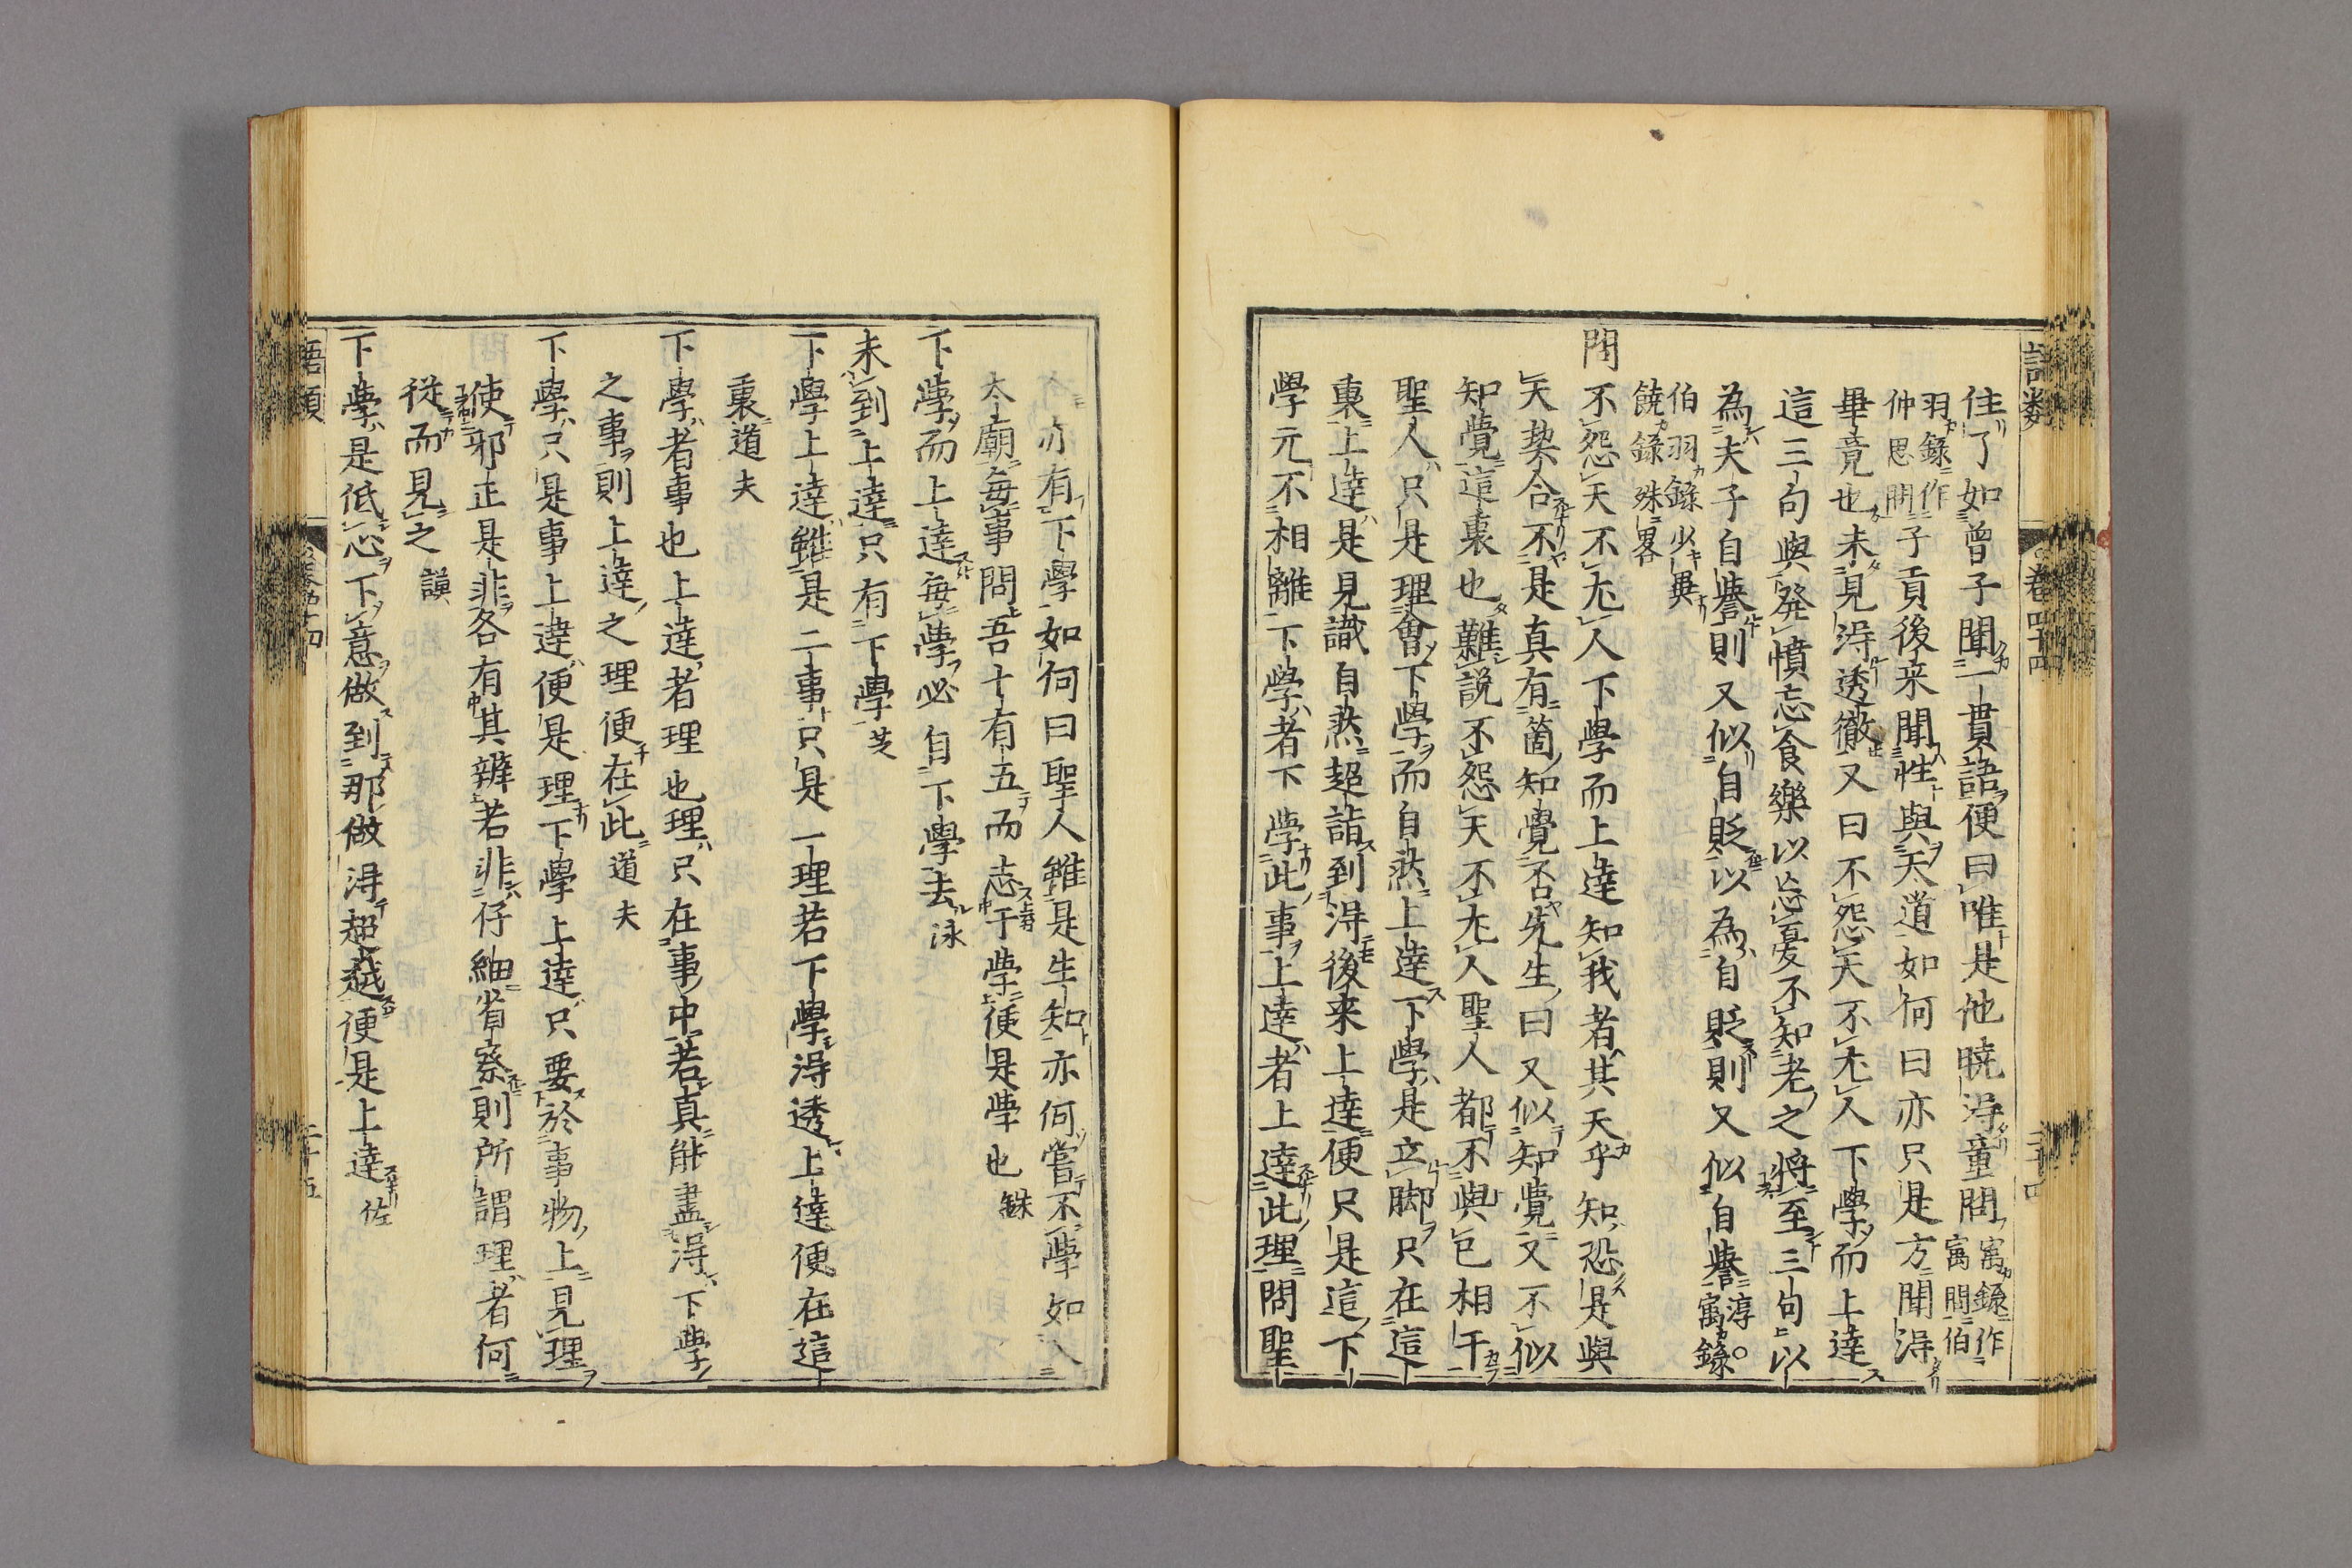 語類
卷四十四
三十四
住了如曾子聞一貫語便曰唯是他曉得童問寓錄作寓問伯
羽錄作仲思問子貢後来聞性與天道如何曰亦只是方聞得
畢竟也未見得透徹又曰不怨天不尤人下學而上達
這三句與發憤忘食樂以忘憂不知老之將至三句以
為夫子自譽則又似自貶以為自貶則又似自譽淳○寓錄
伯羽錄少異饒錄殊略
問不怨天不尤人下學而上達知我者其天乎知恐是與
天契合不是真有箇知覺否先生曰又似知覺又不似
知覺這裏也難說不怨天不尤人聖人都不與己相干
聖人只是理會下學而自然上達下學是立脚只在這
裏上達是見識自然超詣到得後来上達便只是這下
學元不相離下學者下學此事上達者上達此理問聖
亦有下學如何曰聖人雖是生知亦何嘗不學如入
太廟每事問吾十有五而志于學便是學也銖
下學而上達每學必自下學去泳
未到上達只有下學芝
下學上達雖是二事只是一理若下學得透上達便在這
裏道夫
下學者事也上達者理也理只在事中若真能盡得下學
之事則上達之理便在此道夫
下學只是事上達便是理下學上達只要於事物上見理
使邪正是非各有其辨若非仔細省察則所謂理者何
從而見之謨
下學是低心下意做到那做得超越便是上達佐
語類
卷四十四
三十五